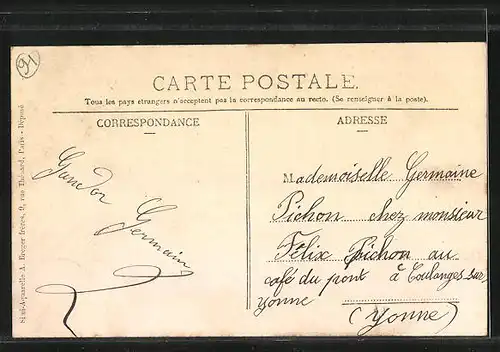 91
CARTE POSTALE.
Tous les pays étrangers n'acceptent pas la correspondance au recto. (Se renseigner à la poste).
CORRESPONDANCE
ADRESSE
Germain
Mademoiselle Germaine
Pichon chez monsieur
Félix Pichon au
café du pont à Coulanges sur
yonne
(Yonne)
Simi-Aquarelle A. Breger frères, 9, rue Thénard, Paris - Déposé